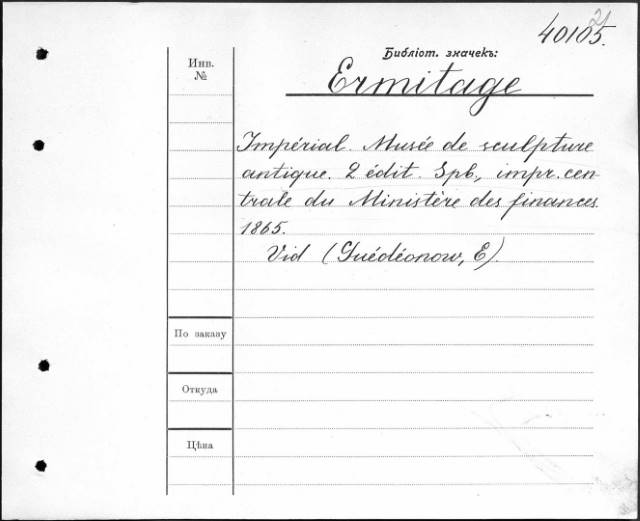 21
40105.
Библіот. значекъ:
Инв.
№
Ermitage
Impérial. Musée de sculpture
antique. 2 édit. Spb., impr. cen-
trale du Ministère des finances
1865.
Vid (Guédéonow, E).
По заказу
Откуда
Цѣна